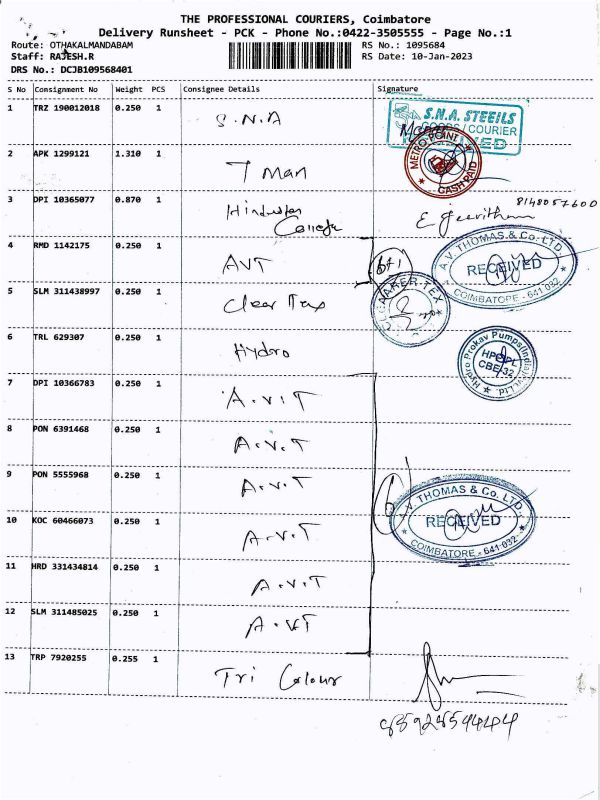 THE PROFESSIONAL COURIERS, Coimbatore
Delivery Runsheet - PCK - Phone No.:0422-3505555 - Page No.:1
Route: OTHAKALMANDABAM RS No.: 1095684
Staff: RAJESH.R RS Date: 10-Jan-2023
DRS No.: DCJB109568401
S No Consignment No Weight PCS Consignee Details Signature
1 TRZ 190012018 0.250 1 S.N.A
S.N.A. STEEILS
GOODS / COURIER
RECEIVED
2 APK 1299121 1.310 1 T Man
METRO POINT
CASH PAID
3 DPI 10365077 0.870 1 Hindustan College
8148057600
4 RMD 1142175 0.250 1 AVT
A.V. THOMAS & Co. LTD.
RECEIVED
COIMBATORE - 641 032
5 SLM 311438997 0.250 1 Clear Tex
6 TRL 629307 0.250 1 Hydro
Hydro Prokav Pumps(India)(P)Ltd.
HPPIPL
CBE/32
7 DPI 10366783 0.250 1 A.V.T
8 PON 6391468 0.250 1 A.V.T
9 PON 5555968 0.250 1 A.V.T
6
A.V. THOMAS & Co. LTD.
RECEIVED
COIMBATORE - 641 032
10 KOC 60466073 0.250 1 A.V.T
11 HRD 331434814 0.250 1 A.V.T
12 SLM 311485025 0.250 1 A.VT
13 TRP 7920255 0.255 1 Tri Colour